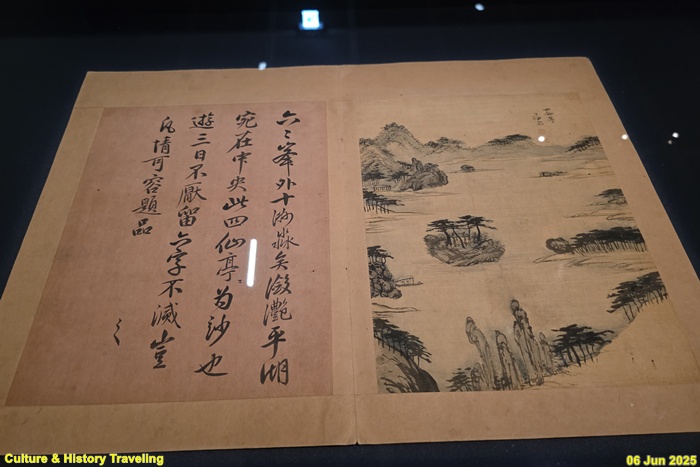 六〻峯外十洲淼矣瀲灩平湖
宛在中央此四仙亭爲妙也
遊三日不厭留六字不滅豈
凡情可容題品
Culture & History Traveling
06 Jun 2025